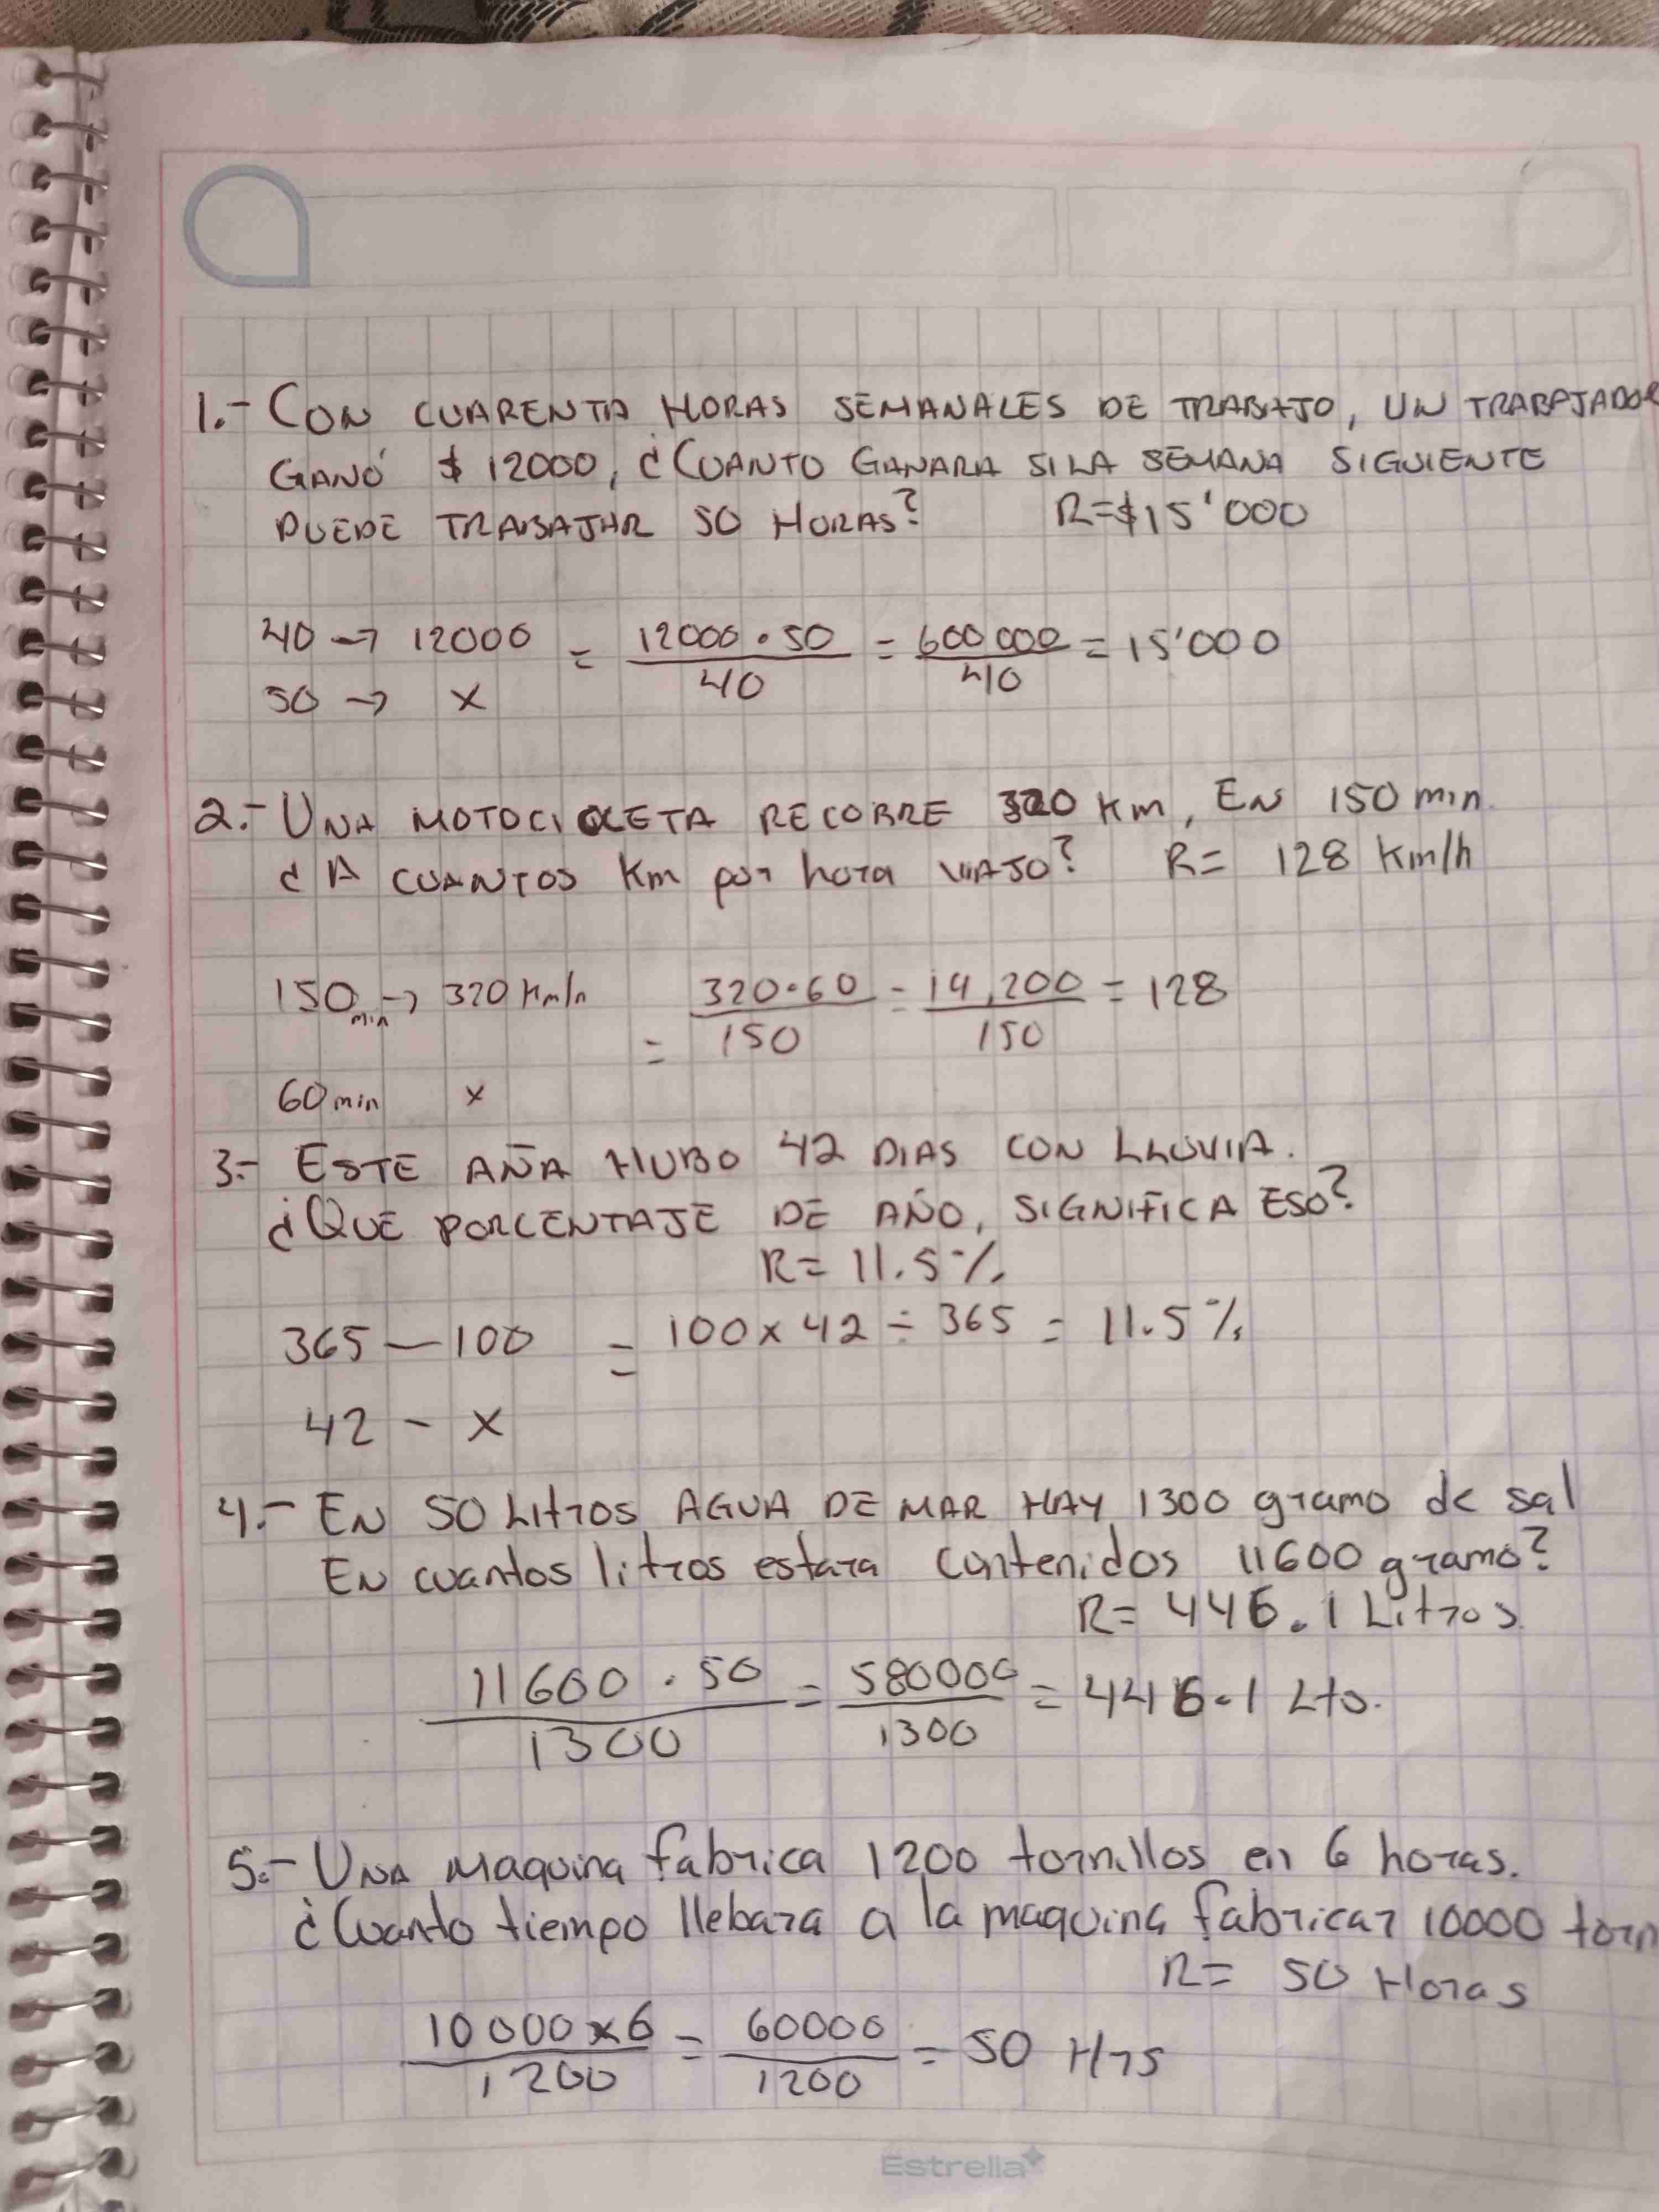 1.- CON CUARENTA HORAS SEMANALES DE TRABAJO, UN TRABAJADOR
GANÓ $ 12000, ¿CUANTO GANARA SI LA SEMANA SIGUIENTE
PUEDE TRABAJAR 50 HORAS? R=$15'000
40 → 12000 = 12000 • 50 / 40 = 600 000 / 40 = 15'000
50 → x
2.- UNA MOTOCICLETA RECORRE 320 Km, EN 150 min.
¿A CUANTOS Km por hora VIAJO? R= 128 Km/h
150 min → 320 Km/h = 320•60 / 150 = 19,200 / 150 = 128
60 min x
3.- ESTE AÑA HUBO 42 DIAS CON LLUVIA.
¿QUE PORCENTAJE DE AÑO, SIGNIFICA ESO?
R= 11.5%
365 — 100 = 100 x 42 ÷ 365 = 11.5%
42 - x
4.- EN 50 Litros AGUA DE MAR HAY 1300 gramo de sal
EN cuantos litros estara contenidos 11600 gramo?
R= 446.1 Litros
11600 . 50 / 1300 = 580000 / 1300 = 446.1 Lto.
5.- UNA Maquina fabrica 1200 tornillos en 6 horas.
¿Cuanto tiempo llebara a la maquina fabricar 10000 torn
R= 50 Horas
10000 x 6 / 1200 = 60000 / 1200 = 50 Hrs
Estrella